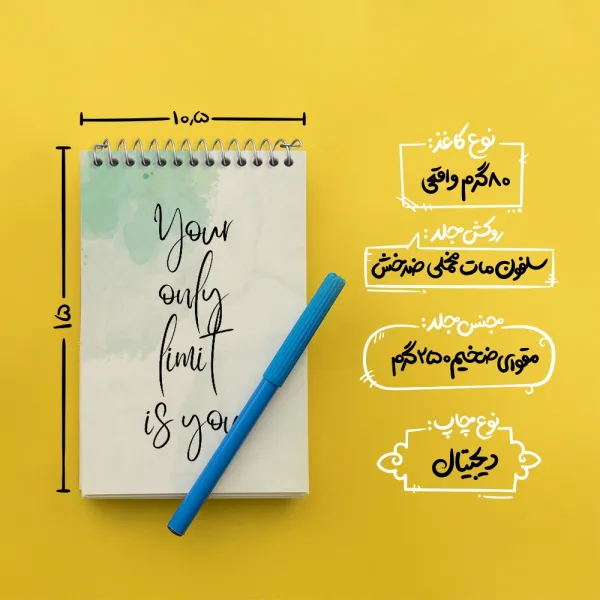 ۱۰٫۵
۱۵
Your
only
limit
is you
نوع کاغذ:
۸۰گرم واقعی
روکش جلد:
سلفون مات مخملی ضدخش
جنس جلد:
مقوای ضخیم ۲۵۰گرم
نوع چاپ:
دیجیتال